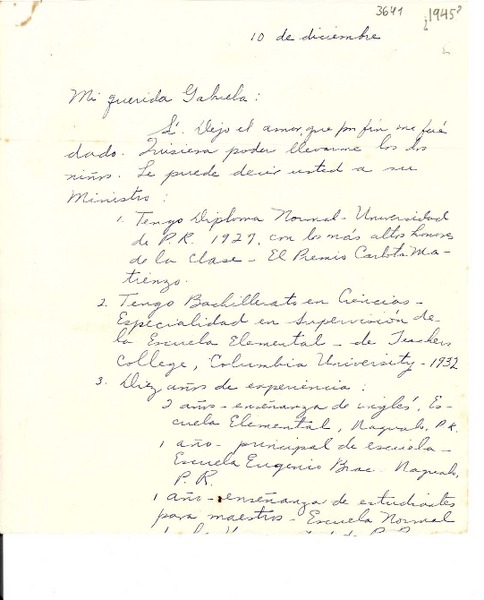 3641
¿1945?
10 de diciembre
Mi querida Gabriela:
Sí. Dejo el amor, que por fin me fué
dado. Quisiera poder llevarme los dos
niños. Le puede decir usted a su
Ministro:
1. Tengo Diploma Normal - Universidad
de P.R. 1927, con los más altos honores
de la clase - El Premio Carlota Ma-
tienzo.
2. Tengo Bachillerato en Ciencias -
Especialidad en Supervisión de
la Escuela Elemental - de Teachers
College, Columbia University - 1932
3. Diez años de experiencia:
2 años - enseñanza de inglés, Es-
cuela Elemental, Naguabo, P.R.
1 año - principal de escuela -
Escuela Eugenio Brac. Naguabo,
P.R.
1 año - enseñanza de estudiantes
para maestros - Escuela Normal